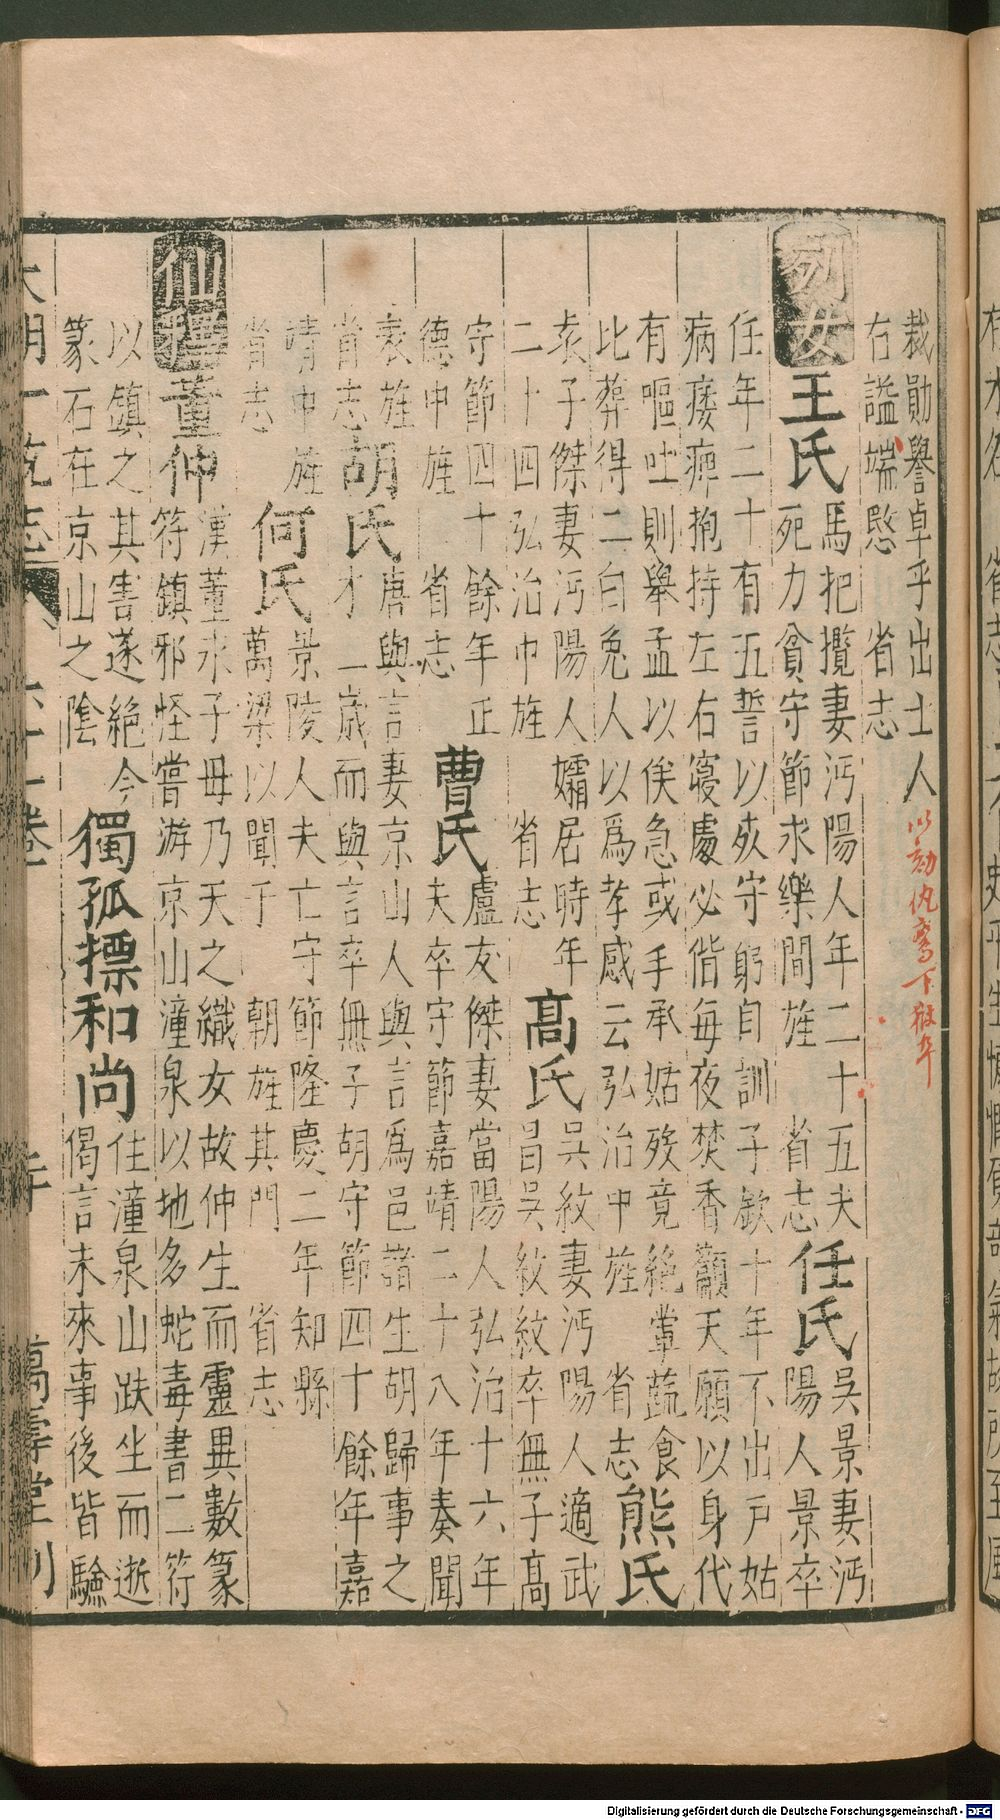 裁勛譽卓乎出士人
右謚端愍　省志
列女
王氏
馬把攬妻沔陽人年二十五夫
死力貧守節求樂間旌　省志
任氏
吳景妻沔
陽人景卒
任年二十有五誓以死守躬自訓子欽十年不出戶姑
病痿痺抱持左右寢處必偕每夜焚香籲天願以身代
有嘔吐則舉盂以俟急或手承姑歿竟絕葷蔬食
比葬得二白兔人以爲孝感云弘治中旌　省志
熊氏
袁子傑妻沔陽人孀居時年
二十四弘治中旌　省志
高氏
吳紋妻沔陽人適武
昌吳紋紋卒無子高
守節四十餘年正
德中旌　省志
曹氏
盧友傑妻當陽人弘治十六年
夫卒守節嘉靖二十八年奏聞
表旌
省志
胡氏
唐與言妻京山人與言爲邑諸生胡歸事之
才一歲而與言卒無子胡守節四十餘年嘉
靖中旌
省志
何氏
景陵人夫亡守節隆慶二年知縣
萬梁以聞于　朝旌其門　省志
仙釋
董仲
漢董永子母乃天之織女故仲生而靈異數篆
符鎮邪怪嘗游京山潼泉以地多蛇毒書二符
以鎮之其害遂絕今
篆石在京山之陰
獨孤摽和尚
住潼泉山趺坐而逝
偈言未來事後皆驗
大明一統志　六十一卷　萬壽堂刊
Digitalisierung gefördert durch die Deutsche Forschungsgemeinschaft - DFG